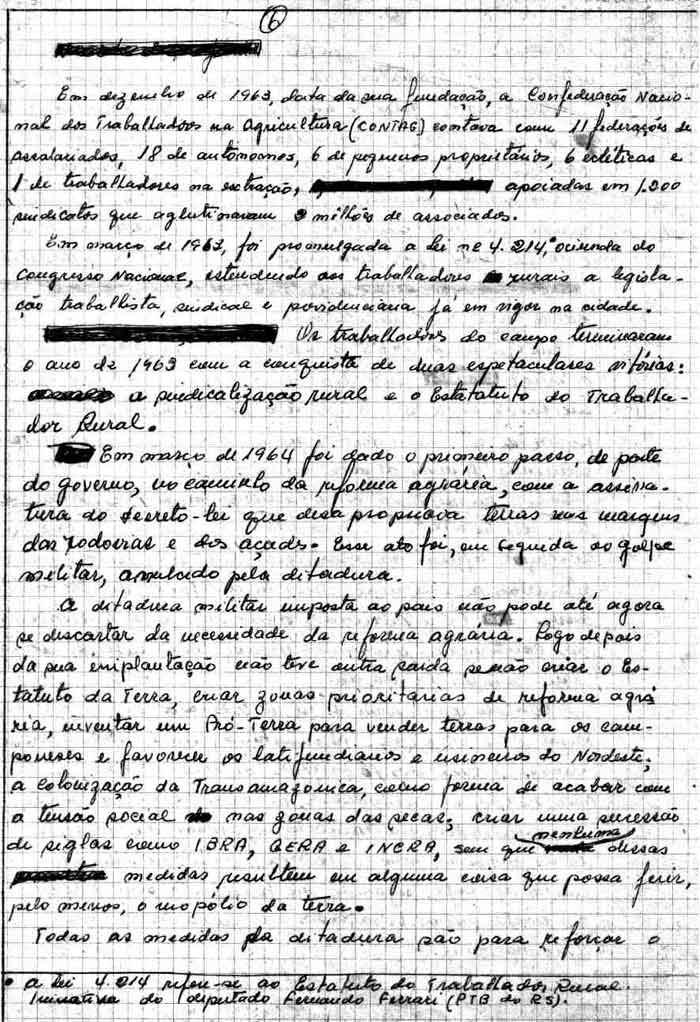 6
Em dezembro de 1963, data da sua fundação, a Confederação Nacio-
nal dos Trabalhadores na Agricultura (CONTAG) contava com 11 federações de
assalariados, 18 de autônomos, 6 de pequenos proprietários, 6 ecléticas e
1 de trabalhadores na extração, apoiadas em 1.200
sindicatos que aglutinavam milhões de associados.
Em março de 1963, foi promulgada a Lei nº 4.214,• oriunda do
Congresso Nacional, estendendo aos trabalhadores rurais a legisla-
ção trabalhista, sindical e previdenciária já em vigor na cidade.
Os trabalhadores do campo terminaram
o ano de 1963 com a conquista de duas espetaculares vitórias:
a sindicalização rural e o Estatuto do Trabalha-
dor Rural.
Em março de 1964 foi dado o primeiro passo, de parte
do governo, no caminho da reforma agrária, com a assina-
tura do decreto-lei que desapropriava terras nas margens
das rodovias e dos açudes. Esse ato foi, em seguida ao golpe
militar, anulado pela ditadura.
A ditadura militar imposta ao país não pode até agora
se descartar da necessidade da reforma agrária. Logo depois
da sua implantação não teve outra saída senão criar o Es-
tatuto da Terra, criar zonas prioritárias de reforma agrá
ria, inventar um Pró-Terra para vender terras para os cam-
poneses e favorecer os latifundiários e usineiros do Nordeste;
a colonização da Transamazônica, como forma de acabar com
a tensão social nas zonas das secas; criar uma sucessão
de siglas como IBRA, GERA e INCRA, sem que nenhuma dessas
medidas resultem em alguma coisa que possa ferir,
pelo menos, o mopólio da terra.
Todas as medidas da ditadura são para reforçar o
• a lei 4.014 refere-se ao Estatuto do Trabalhador Rural.
Iniciativa do deputado Fernando Ferrari (PTB do RS).